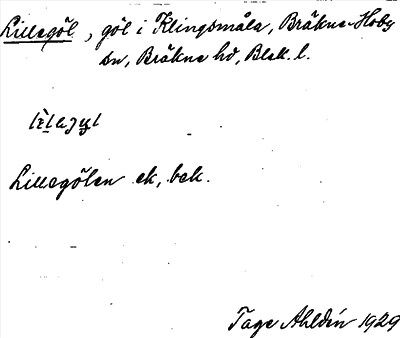 Lillegöl, göl i Klingsmåla, Bräkne-Hoby
sn, Bräkne hd, Blek. l.
Lillegölen ek, bek.
Tage Ahldén 1929